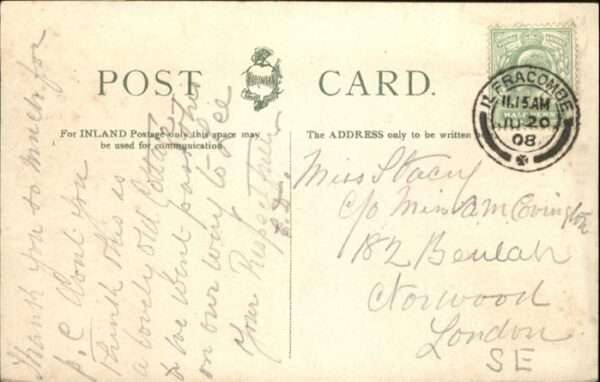 POST CARD.
For INLAND Postage only this space may
be used for communication.
The ADDRESS only to be written
ILFRACOMBE
11.15 AM
JU 20
08
HALFPENNY
Thank you so much for
p.c. Dont you
think this is
a lovely old Cottage
we went past this
on our way to
Your Respectfully
E.D.
Miss Stacey
c/o Miss A M Covington
182 Beulah
Norwood
London
SE